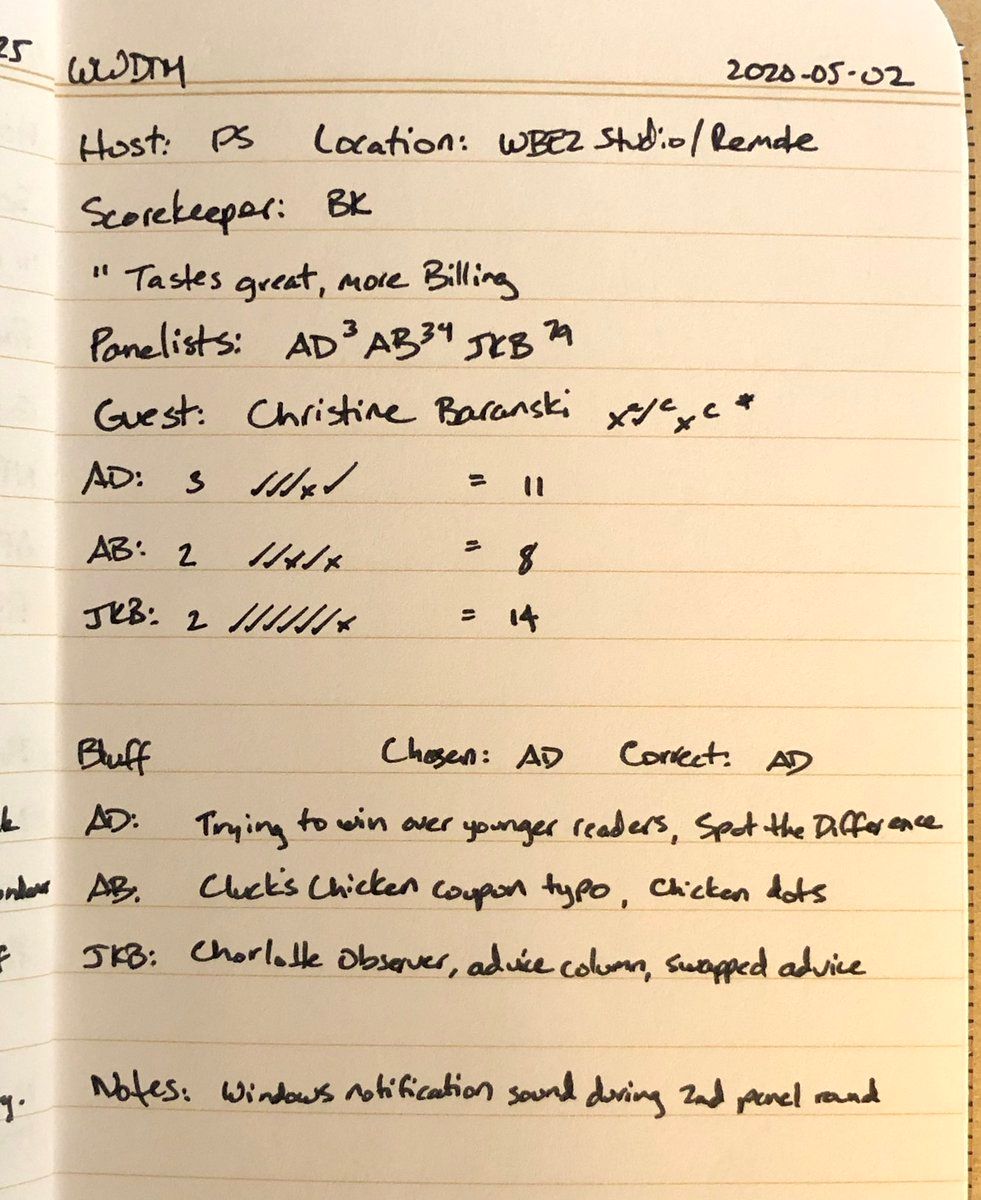 25
WWDTM 2020-05-02
Host: PS Location: WBEZ Studio/Remote
Scorekeeper: BK
" Tastes great, more Billing
Panelists: AD³ AB³⁴ JKB²⁹
Guest: Christine Baranski x c ✓ c x c *
AD: 3 ✓✓✓x✓ = 11
AB: 2 ✓✓x✓x = 8
JKB: 2 ✓✓✓✓✓✓x = 14
Bluff Chosen: AD Correct: AD
AD: Trying to win over younger readers, Spot the Difference
AB. Cluck's Chicken coupon typo, Chicken dots
JKB: Charlotte Observer, advice column, swapped advice
Notes: Windows notification sound during 2nd panel round